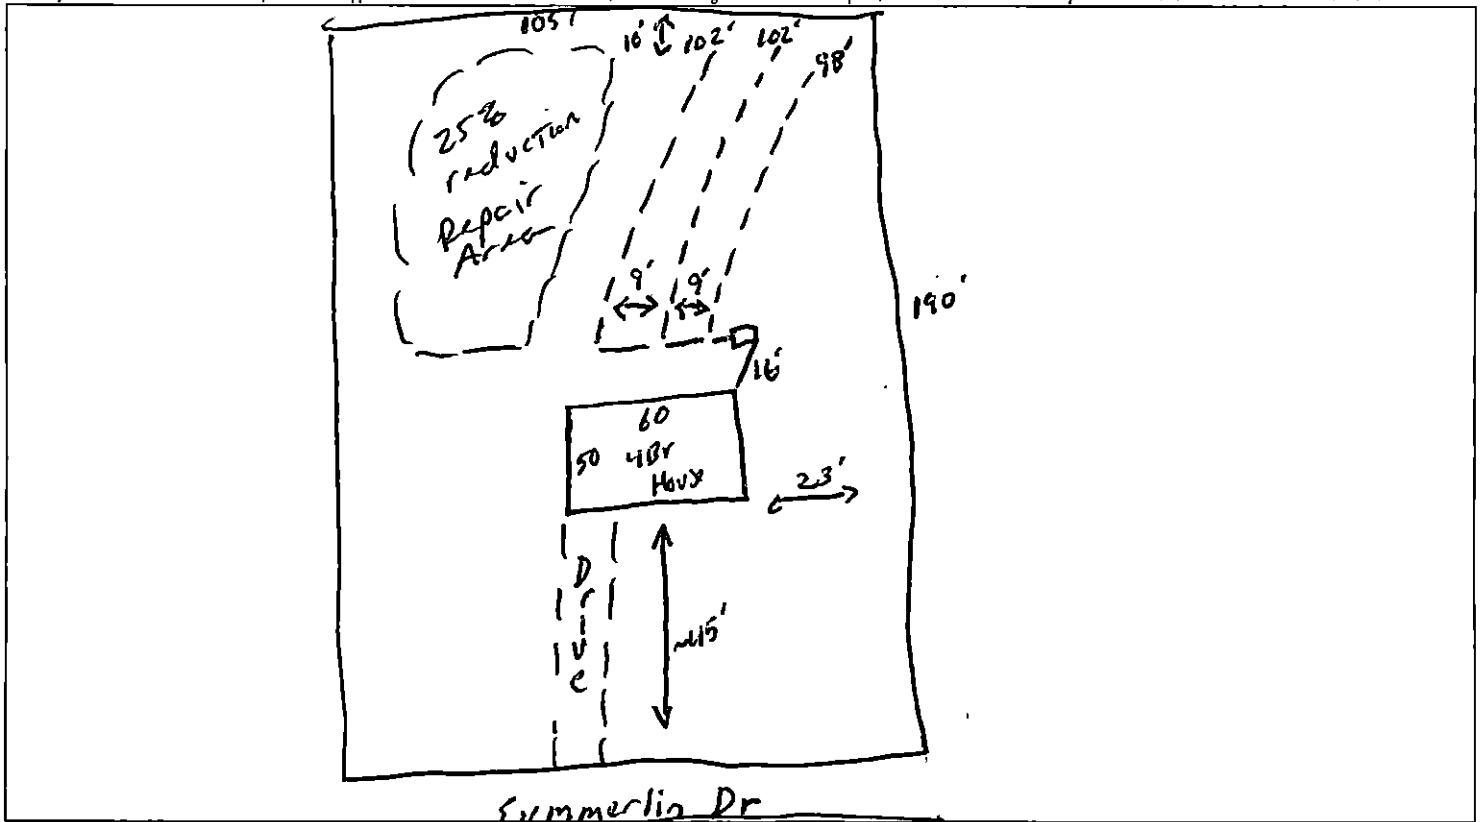 105'
10'
102'
102'
98'
25%
reduction
Repair
Area
9'
9'
190'
16'
60
50
4Br
House
23'
Drive
~45'
Summerlin Dr